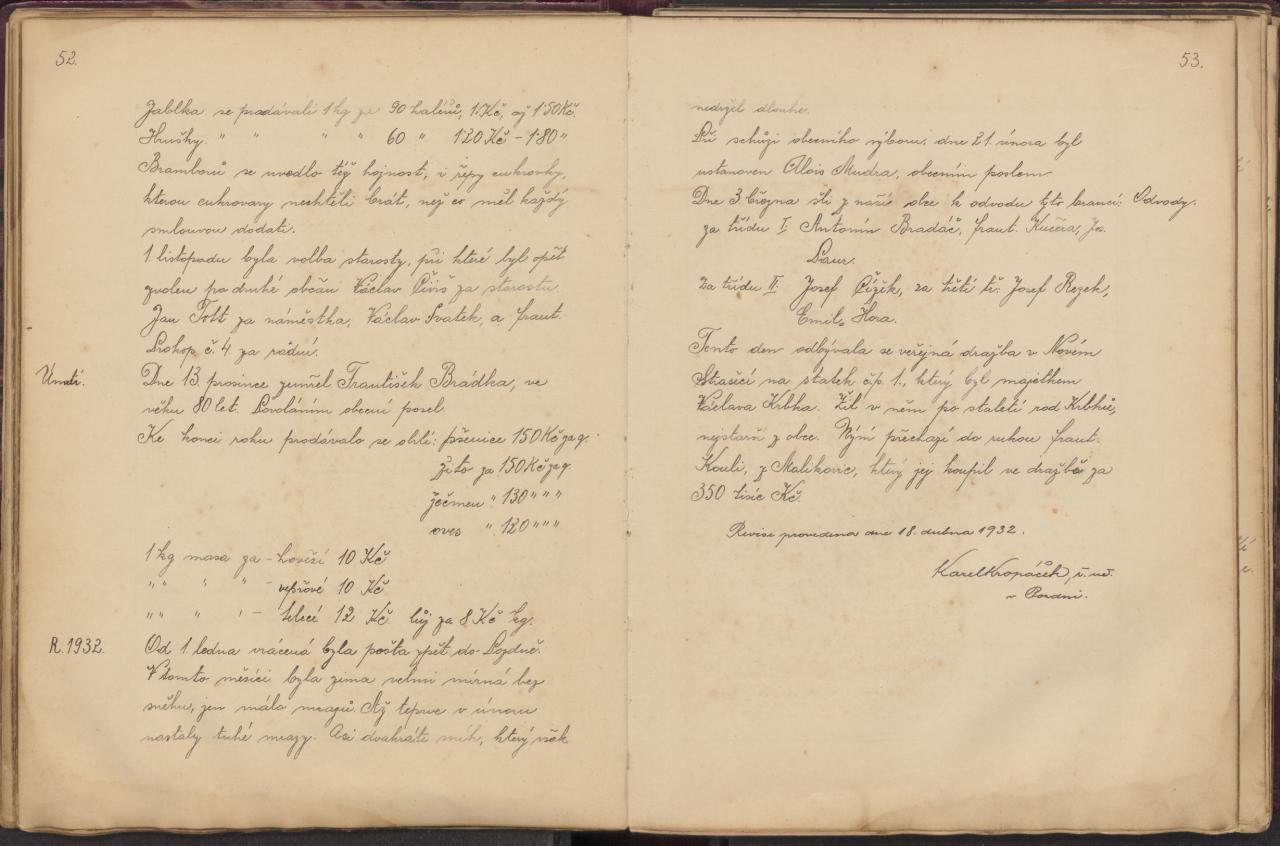 52.
Jablka se prodávali 1 kg za 90 haléřů, 1 Kč, až 1·50 Kč.
Hrušky. " " " " 60 " 1·20 Kč - 1·80 "
Bramborů se uvedlo též hojnost, i řepy cukrovky,
kterou cukrovary nechtěli bráti, než co měl každý
smlouvou dodati.
1. listopadu byla volba starosty, při které byl opět
zvolen po druhé občan Václav Čiviš za starostu.
Jan Tott za náměstka, Václav Svatek, a frant.
Prokop č. 4. za radní.
Úmrtí.
Dne 13. prosince zemřel František Brádka, ve
věku 80 let. Povoláním obecní posel.
Ke konci roku prodávalo se obilí: pšenice 150 Kč za q.
žito za 150 Kč za q.
ječmen " 130 " " "
oves " 120 " " "
1 kg masa za - hovězí 10 Kč
" " " " - vepřové 10 Kč
" " " " - telecí 12 Kč. lůj za 8 Kč kg.
R. 1932.
Od 1. ledna vrácená byla pošta zpět do Pozdně.
V tomto měsíci byla zima velmi mírná bez
sněhu, jen málo mrazů. Až teprve v únoru
nastaly tuhé mrazy. Asi dvakráte sníh, který však
53.
nedržel dlouho.
Při schůzi obecního výboru, dne 21. února byl
ustanoven Alois Mudra, obecním poslem.
Dne 3. března šli z naší obce k odvodu tyto branci: Odvody.
za třídu I: Antonín Bradáč, frant. Kučera, Jos.
Laur.
Za třídu II: Josef Čížek, za třetí tř: Josef Rezek,
Emil, Hora.
Tento den odbývala se veřejná dražba v Novém
Strašecí na statek č.p. 1., který byl majetkem
Václava Krbka. Žil v něm po staletí rod Krbků,
nejstarší z obce. Nyní přechází do rukou frant.
Kouli, z Malikovic, který jej koupil ve dražbě za
350 tisíc Kč.
Revise provedena dne 18. dubna 1932.
Karel Kropáček, ř. uč.
v Pozdni.